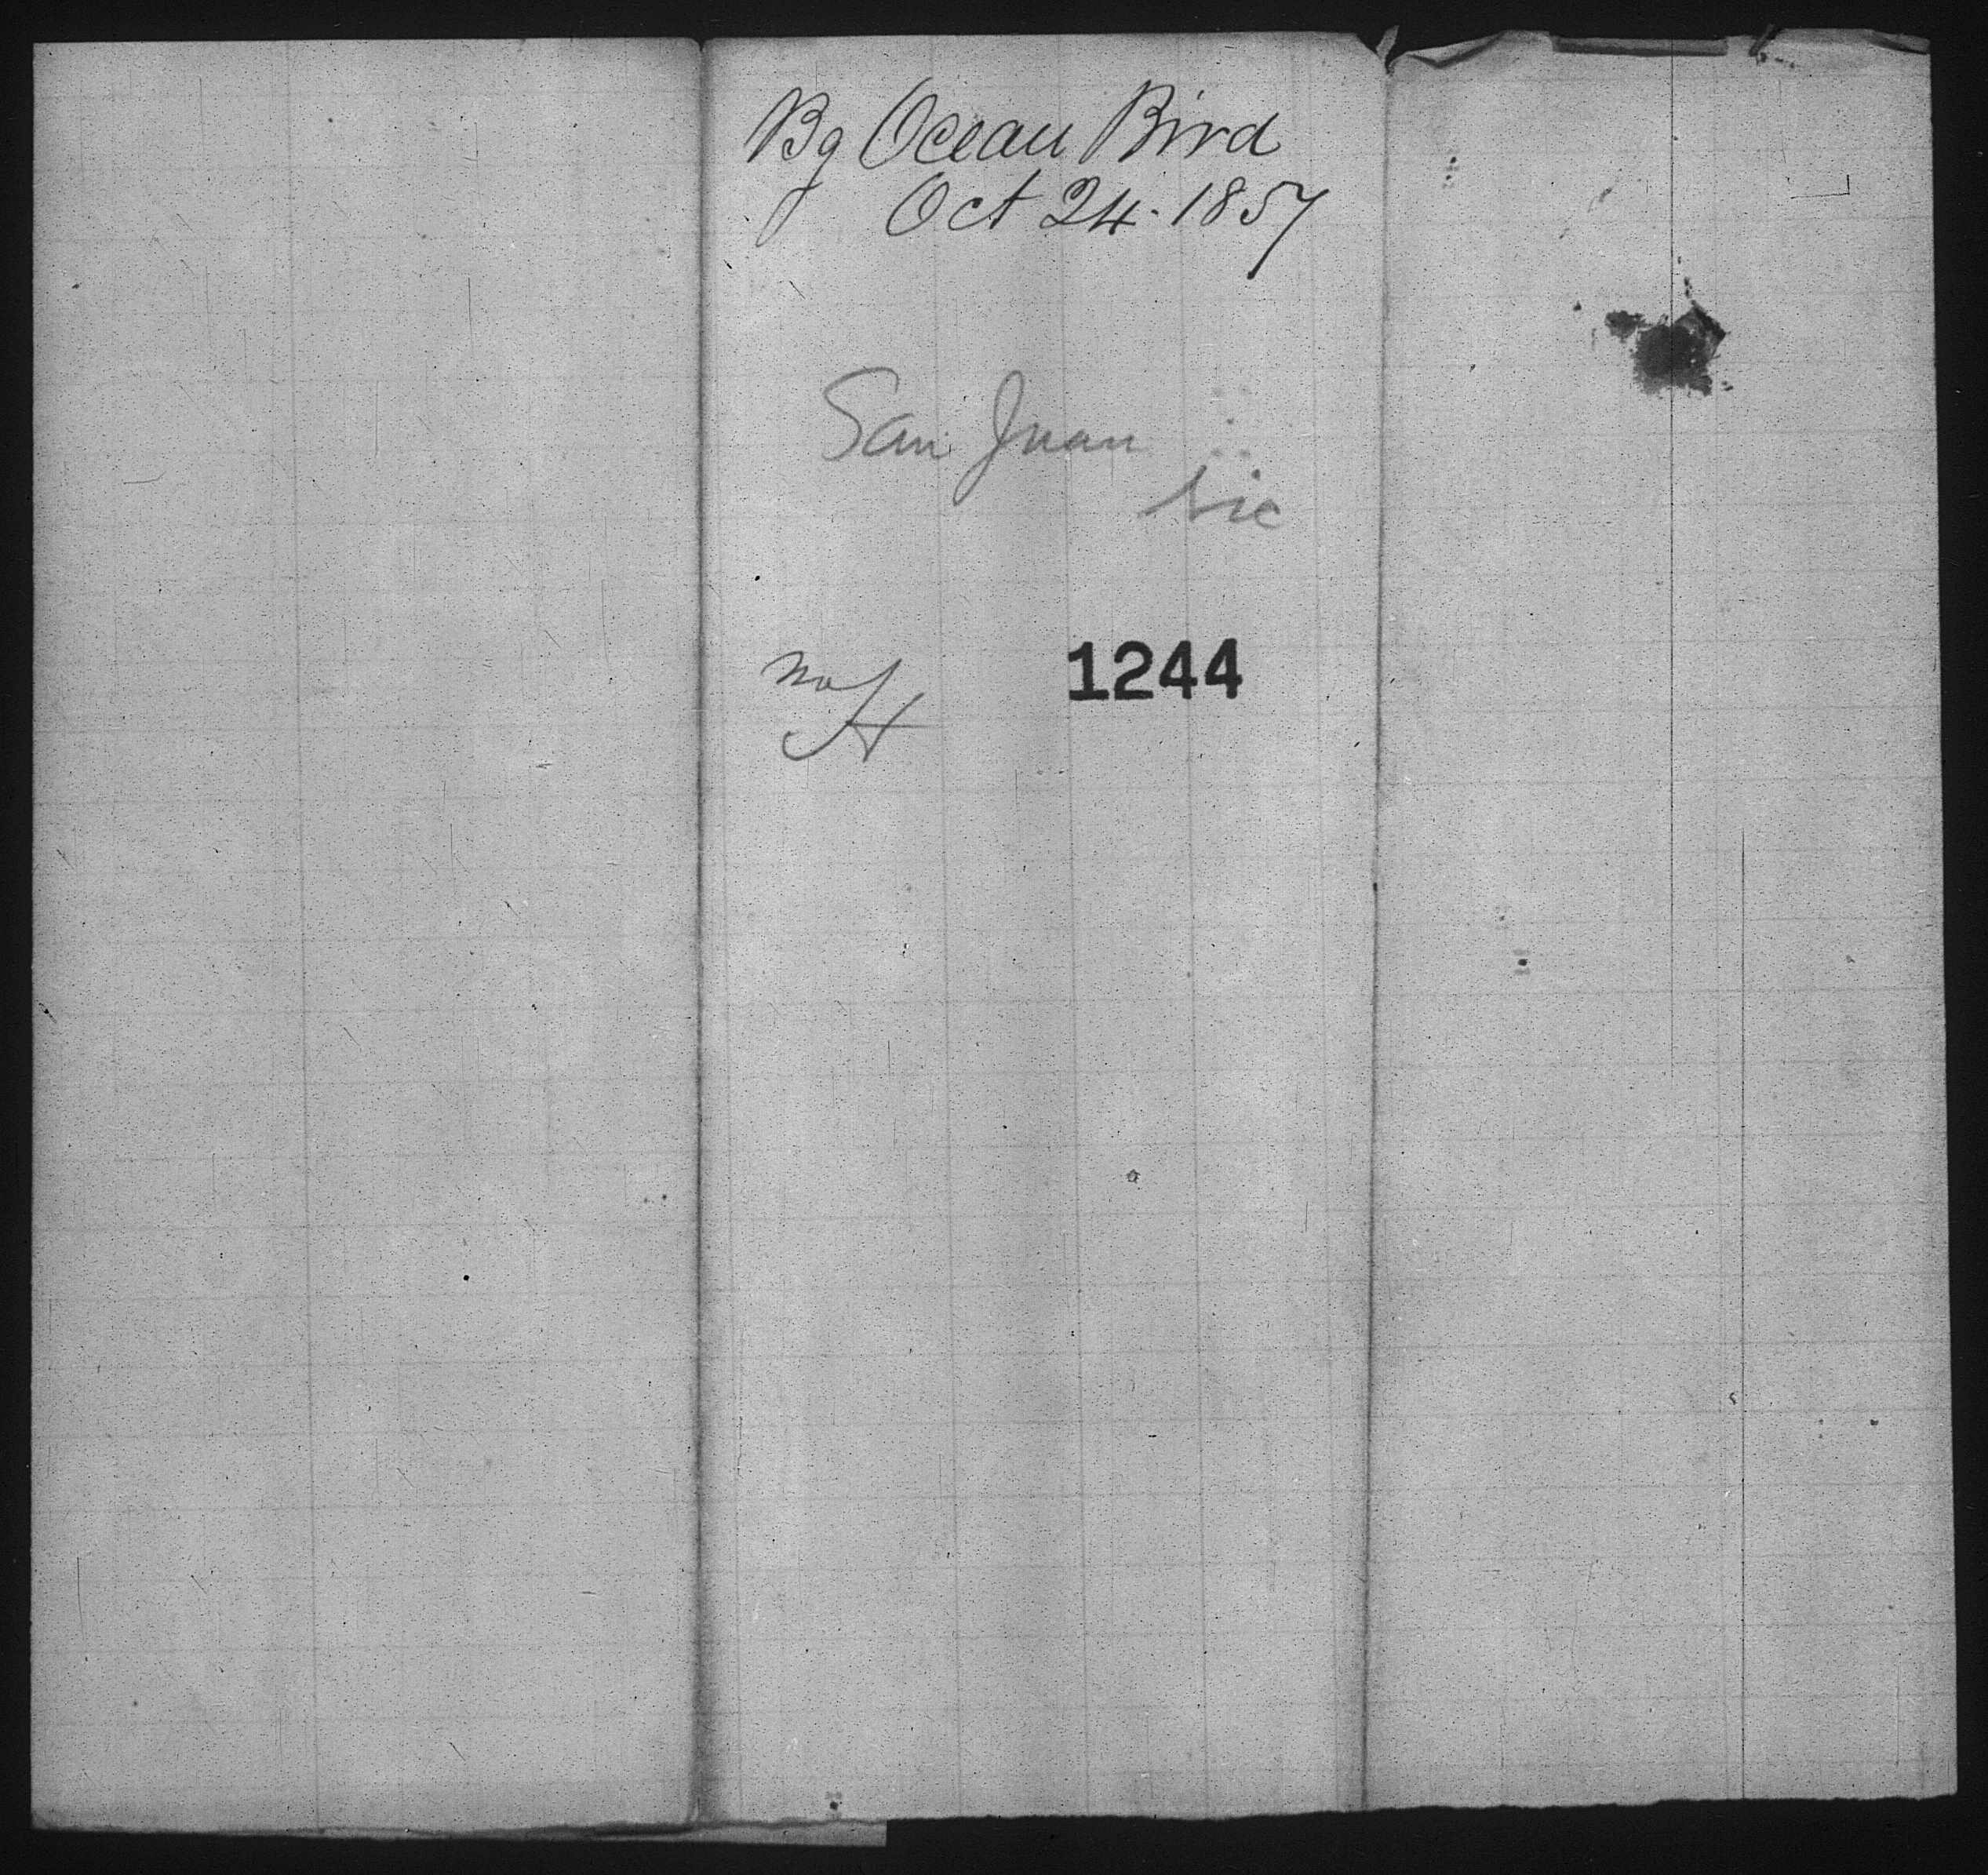 Bg Ocean Bird
Oct 24. 1857
San Juan
Nic
1244